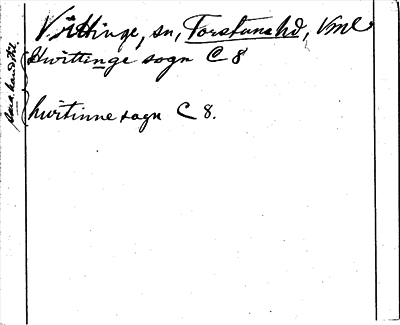 Vittinge, sn, Torstuna hd, Vml
Hwittinge sogn C 8
hwitinne sogn C 8.